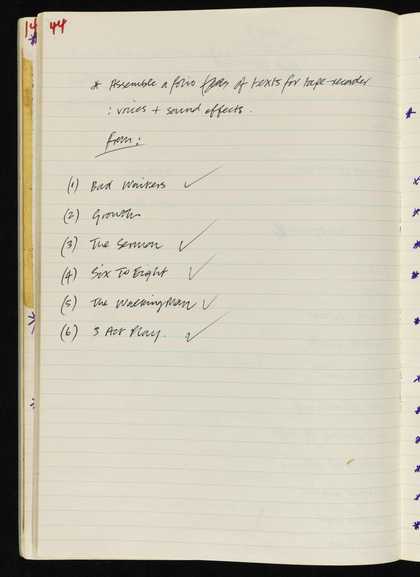 14 44
* Assemble a folio of texts for tape-recorder
: voices + sound effects.
from:
(1) Bad Waiters ✓
(2) Growth
(3) The Sermon ✓
(4) Six To Eight ✓
(5) The Walking Man ✓
(6) 3 Act Play. ✓